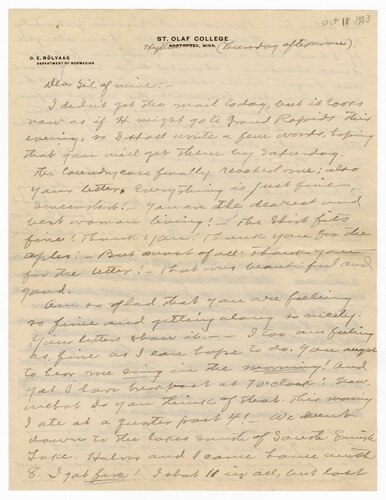 Oct 18 1923
ST. OLAF COLLEGE
NORTHFIELD, MINN. (Thursday afternoon).
O. E. RÖLVAAG
DEPARTMENT OF NORWEGIAN
Dear Girl of mine:-
I didn't get the mail today, but it looks
now as if H. might go to Grand Rapids this
evening, so I shall write a few words, hoping
that you will get them by Saturday.
The laundry case finally reached me; also
your letter. Everything is just fine,
Sweetest! You are the dearest and
best woman living! - The shirt fits
fine! Thank you! Thank you for the
apples! - But most of all: thank you
for the letter! - That was beautiful and
good.
Am so glad that you are feeling
so fine and getting along so nicely.
Your letters show it. - I too am feeling
as fine as I can hope to do. You ought
to hear me sing in the morning! And
yet I have breakfast at 7 o'clock! Now,
what do you think of that. This morning
I ate at a quarter past 4! We went
down to the lakes south of
Lake. Halvor and I came home with
8 I got five! I shot 11 in all, but lost